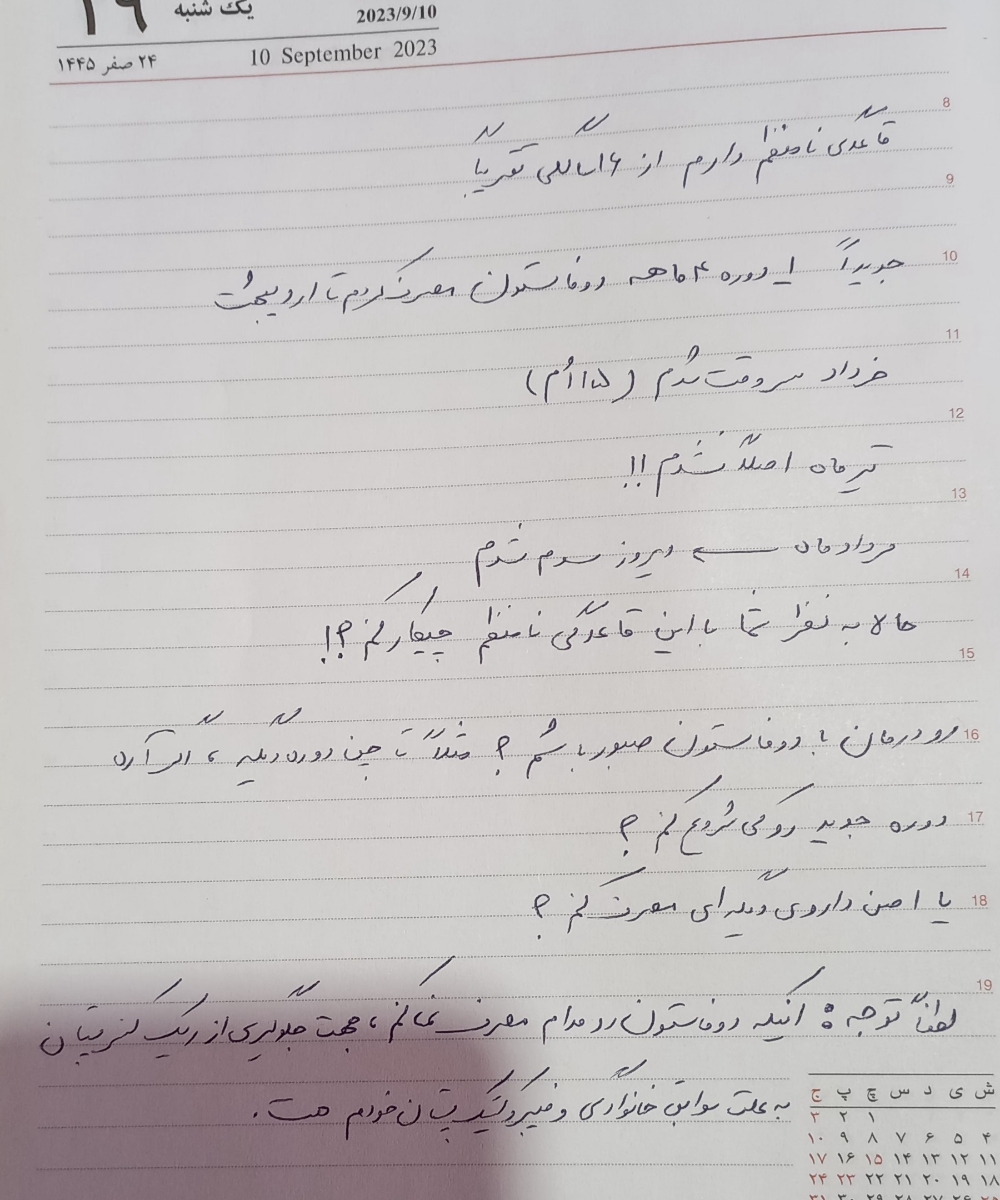 ۱۹ یک شنبه 2023/9/10
۲۴ صفر ۱۴۴۵ 10 September 2023
8
قاعدگی نامنظم دارم از ۱۶سالگی تقریباً
9
10
جدیداً ۱ دوره ۴ماهه دوفاستون مصرف کردم تا اردیبهشت
11
خرداد سروقت شدم (۱۵اُم)
12
تیرماه اصلاً نشدم!!
13
مردادماه دیروز سوم شدم
14
حالا به نظر شما با این قاعدگی نامنظم چیکار کنم؟!
15
16
رو درمان با دوفاستون صبور باشم؟ مثلاً تا چن دوره دیگه، اگر آره
17
دوره جدید رو کی شروع کنم؟
18
یا اصن داروی دیگه‌ای مصرف کنم؟
19
لطفاً توجه: اینکه دوفاستون رو مدام مصرف نمیکنم، جهت جلوگیری از ریسک کنسر پستان
به علت سوابق خانوادگی و فیبروکیستیک پستان خودم هست.
ش ی د س چ پ ج
۱ ۲ ۳
۴ ۵ ۶ ۷ ۸ ۹ ۱۰
۱۱ ۱۲ ۱۳ ۱۴ ۱۵ ۱۶ ۱۷
۱۸ ۱۹ ۲۰ ۲۱ ۲۲ ۲۳ ۲۴